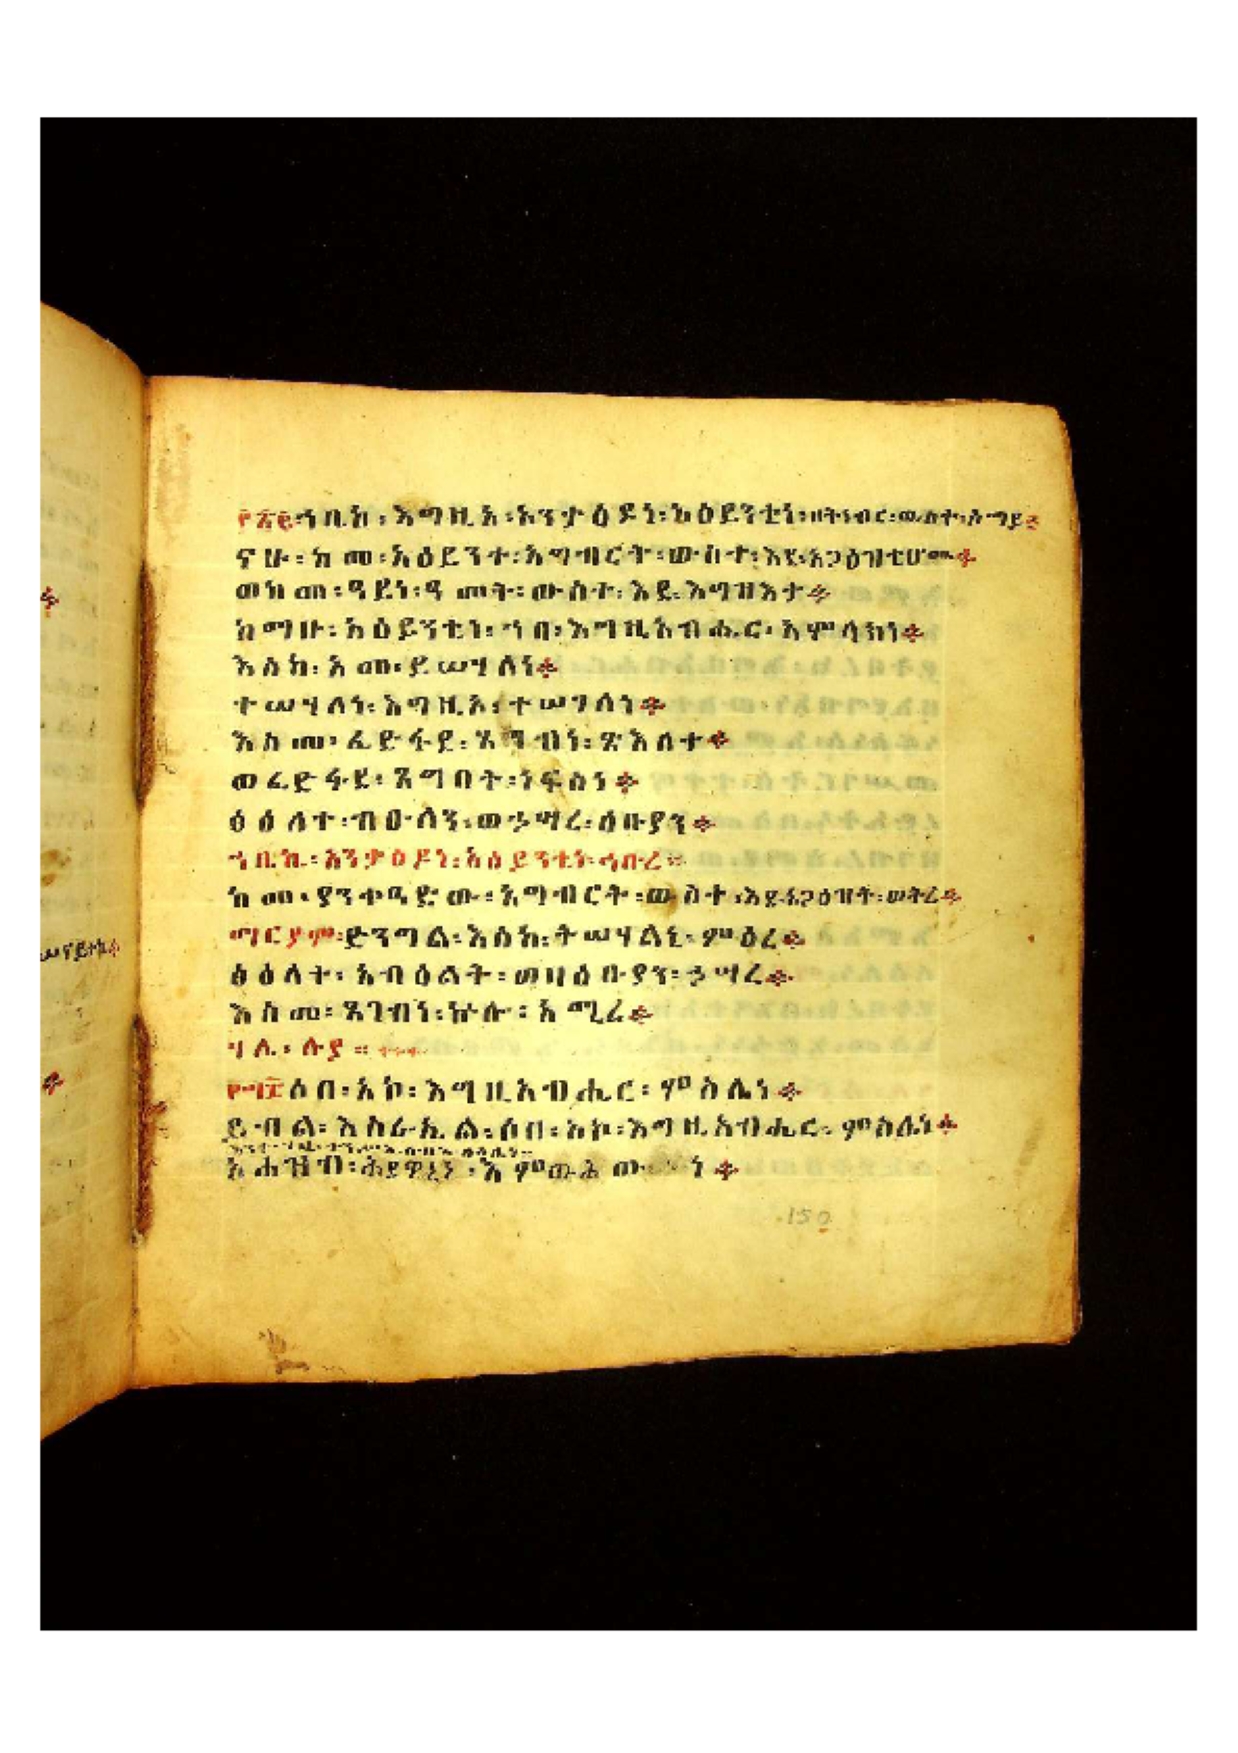 ፻፳፪ ኀቤከ ፡ እግዚአ ፡ አንቃዕዶነ ፡ አዕይንቲነ ፡ ዘትነብር ፡ ውስተ ፡ ሰማይ
ናሁ ፡ ከመ ፡ አዕይንተ ፡ አግብርት ፡ ውስተ ፡ እደ ፡ አጋዕዝቲሆሙ
ወከመ ፡ ዓይነ ፡ ዓመት ፡ ውስተ ፡ እደ ፡ እግዝእታ
ከማሁ ፡ አዕይንቲነ ፡ ኀበ ፡ እግዚአብሔር ፡ አምላክነ
እስከ ፡ አመ ፡ ይሣሃለነ
ተሣሃለነ ፡ እግዚኦ ፡ ተሣሃለነ
እስመ ፡ ፈድፋደ ፡ ጸግብነ ፡ ጽእለተ
ወፈድፋደ ፡ ጸግበት ፡ ነፍስነ
ፅዕለተ ፡ ብዑላን ፡ ወኃሣረ ፡ ዕቡያን
ኀቤኪ ፡ አንቃዕዶነ ፡ አዕይንቲነ ፡ ኅቡረ ።
ከመ ፡ ያንቀዓድው ፡ አግብርት ፡ ውስተ ፡ እደ ፡ አጋዕዝት ፡ ወትረ
ማርያም ፡ ድንግል ፡ እስከ ፡ ትሣሃልኒ ፡ ምዕረ
ፅዕለተ ፡ አብዕልት ፡ ወዛዕቡያን ፡ ኃሣረ
እስመ ፡ ጸገብነ ፡ ኵሎ ፡ አሚረ
ሃሌ ፡ ሉያ ።
ሶበ ፡ አኮ ፡ እግዚአብሔር ፡ ምስሌነ
ይብል ፡ እስራኤል ፡ ሶበ ፡ አኮ ፡ እግዚአብሔር ፡ ምስሌነ
አሐዝብ ፡ ሕያዋኒነ ፡ እምውኅ
150